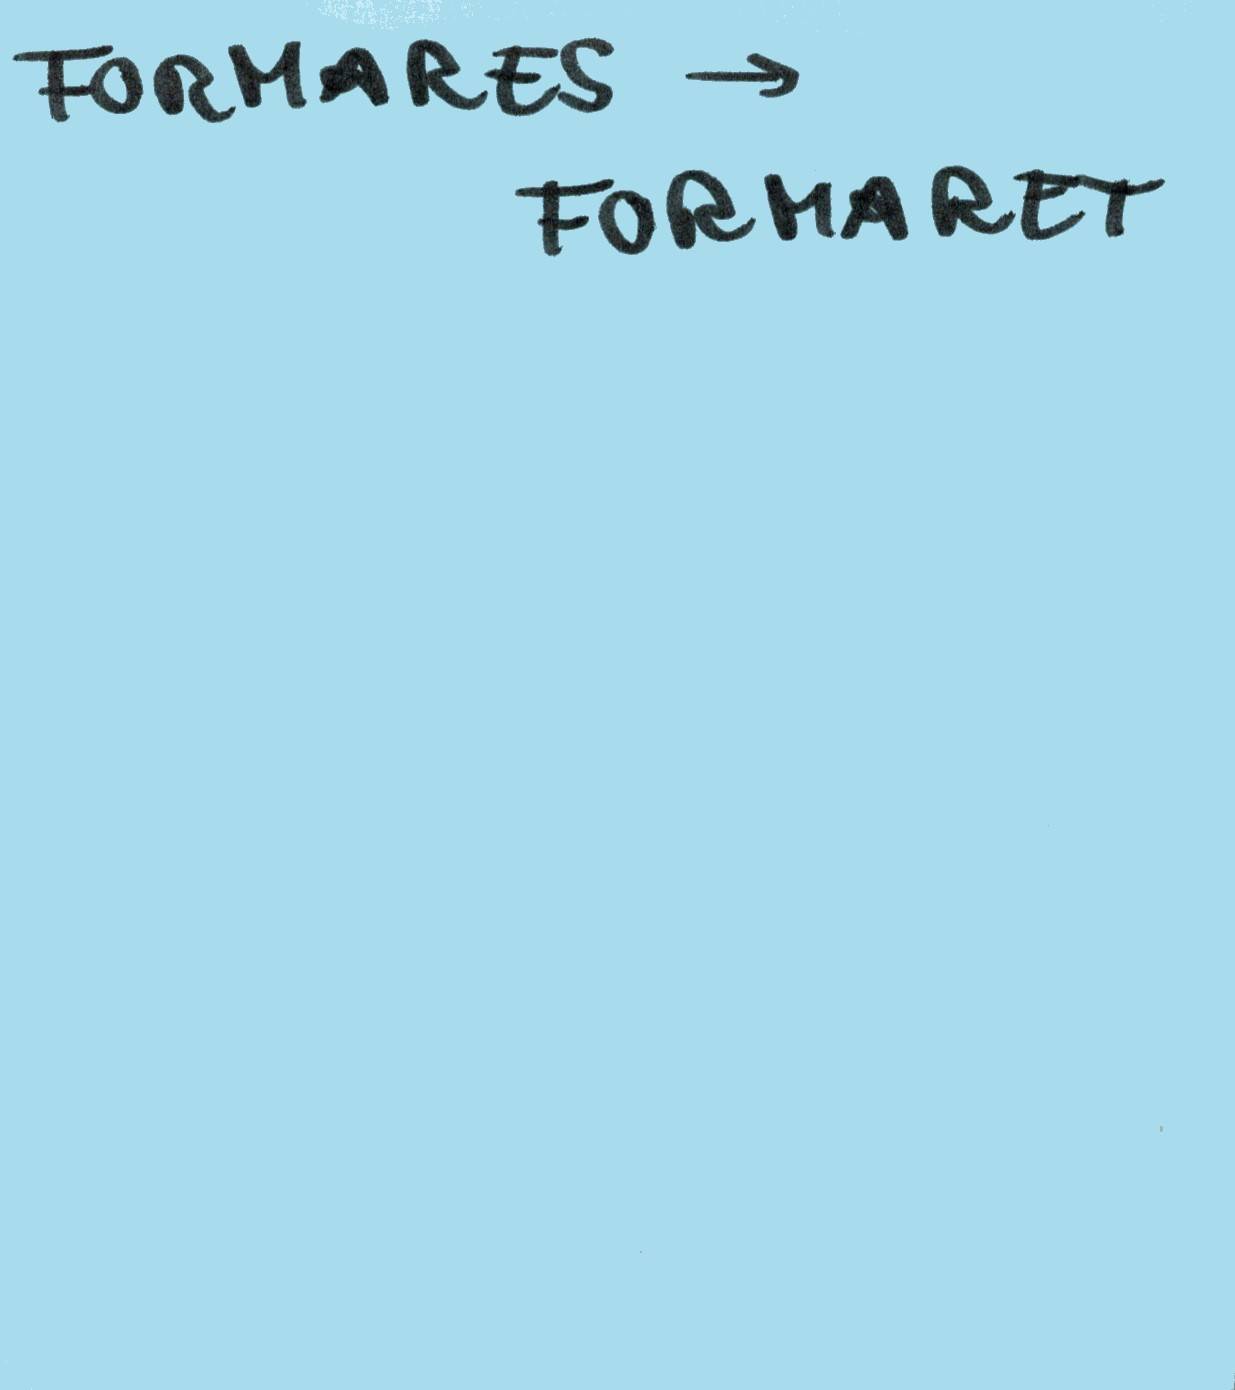 FORMARES →
FORMARET